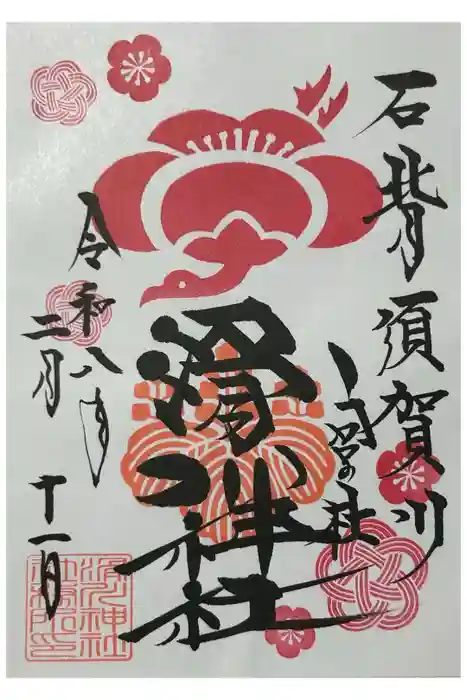 石背 須賀川
滑川神社
令和八年
二月十一日
滑川神社
社務所印